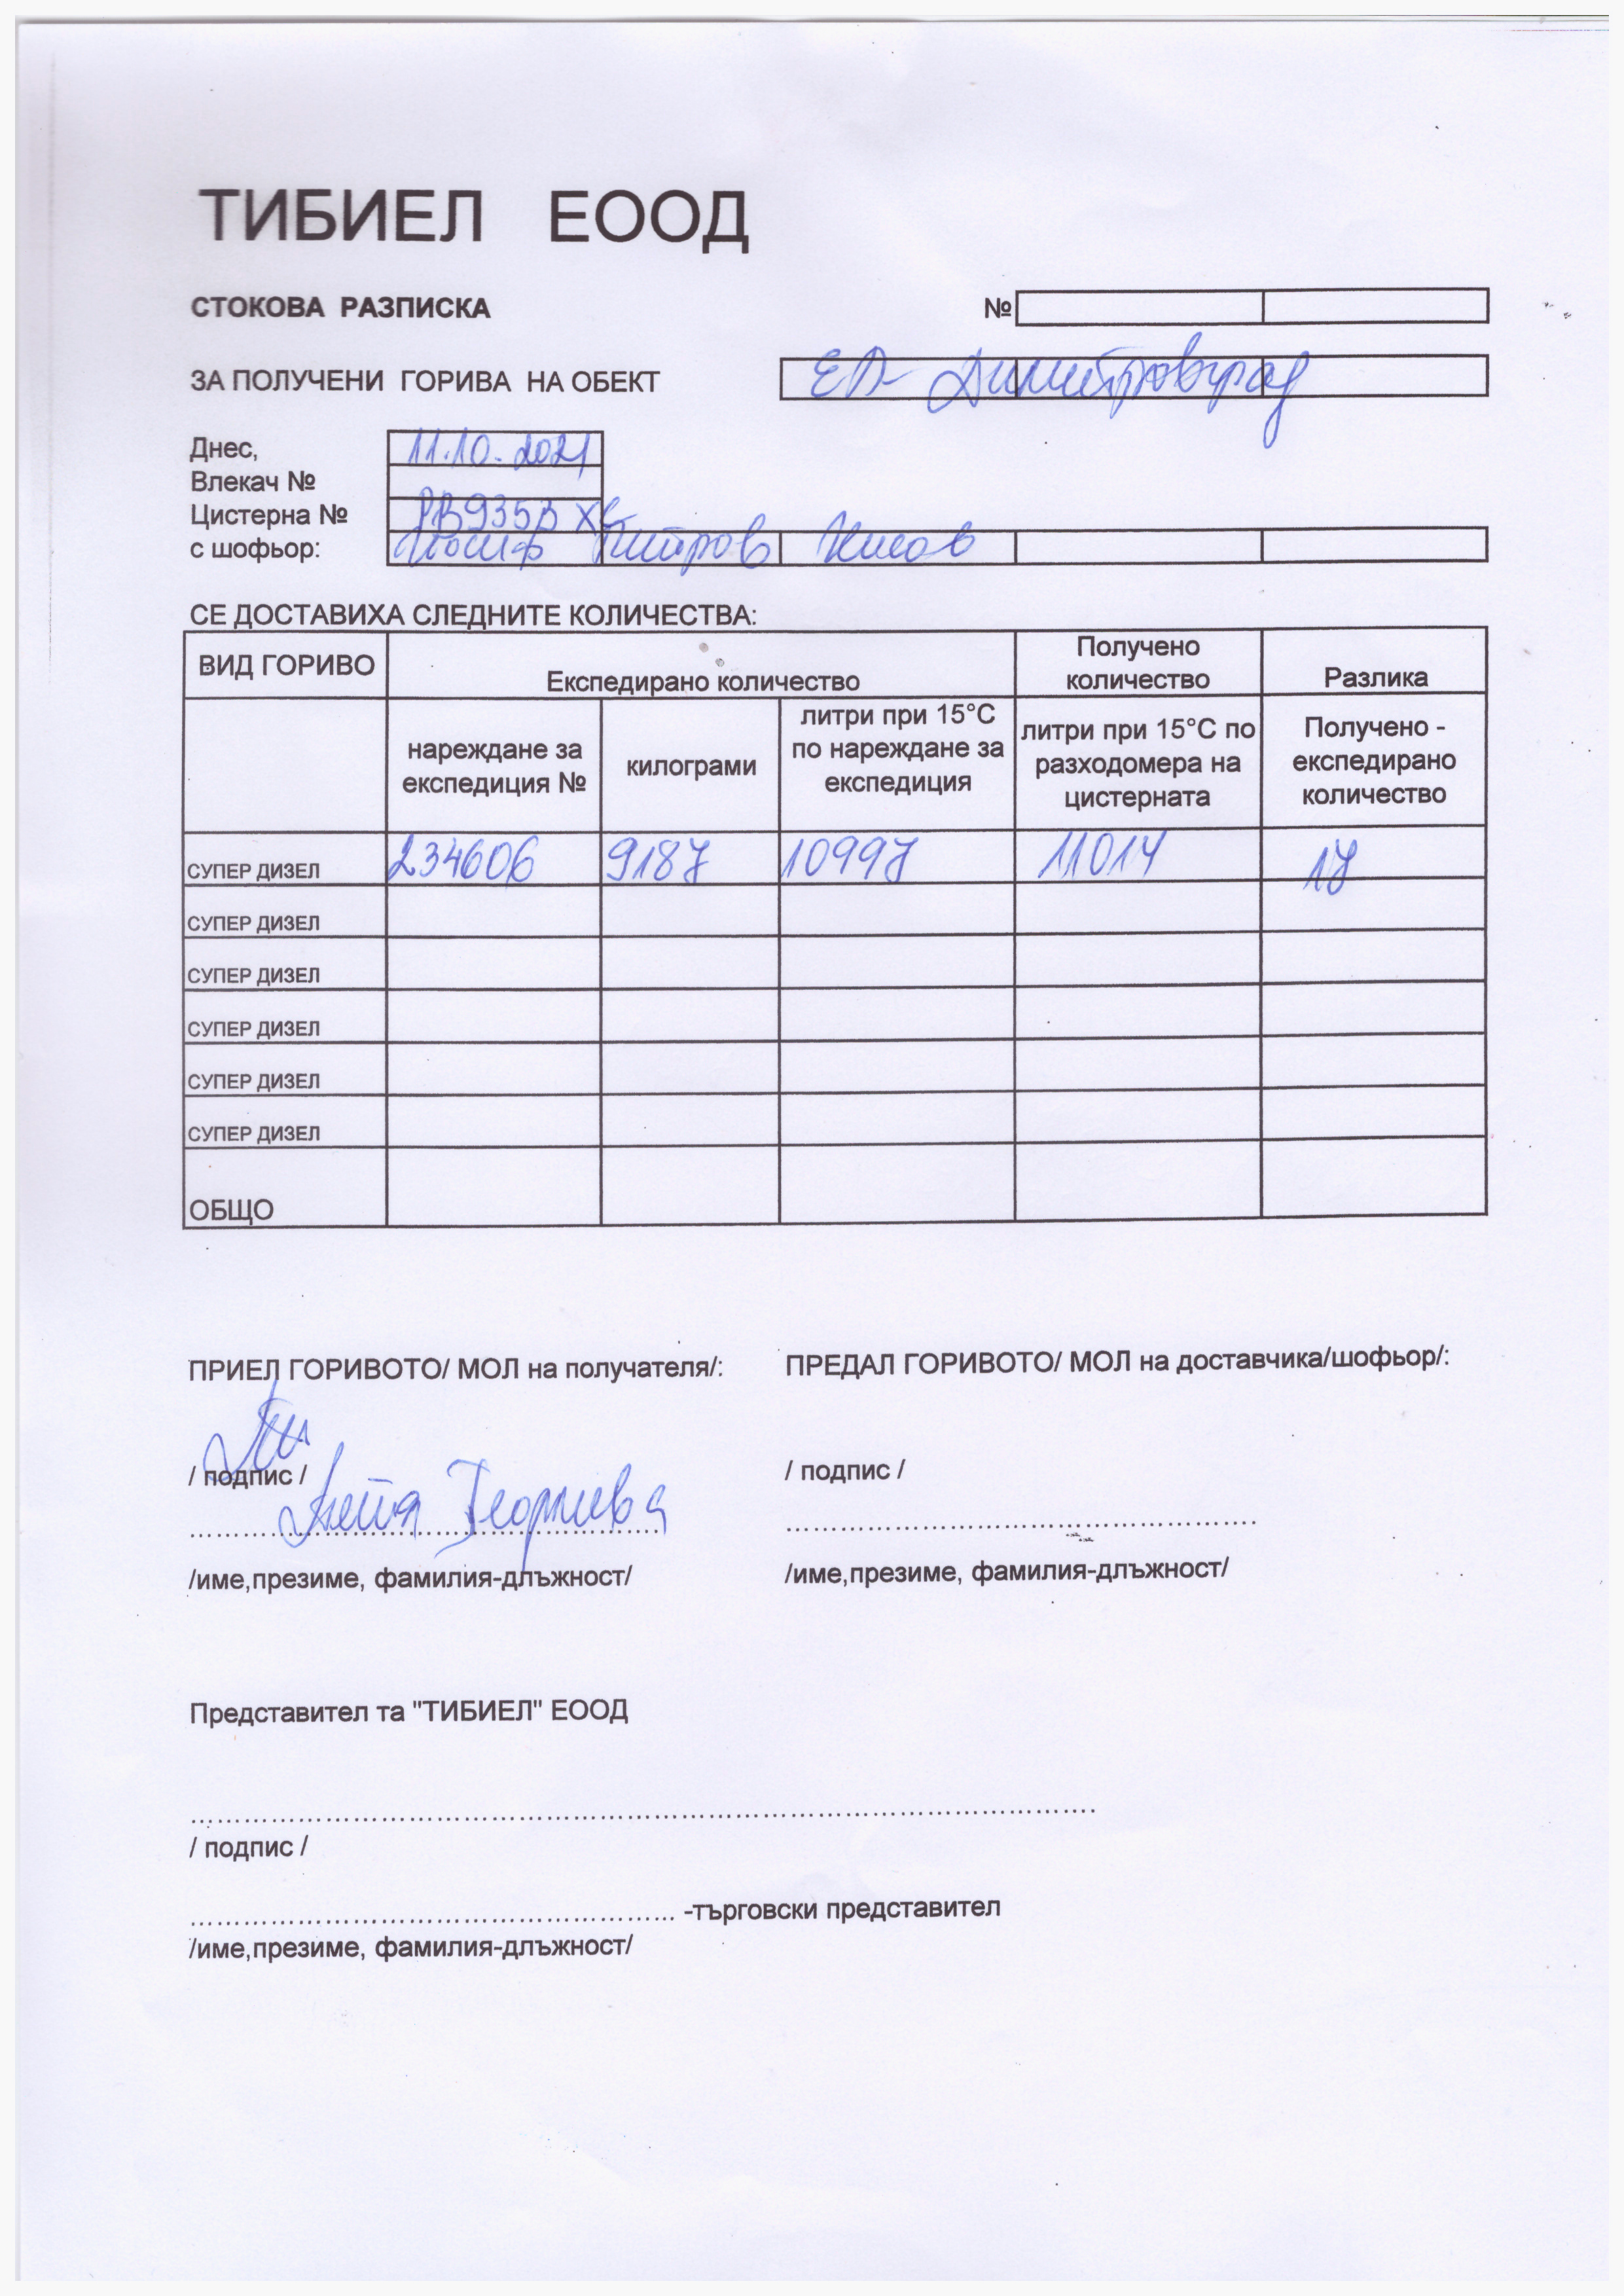 ТИБИЕЛ ЕООД
СТОКОВА РАЗПИСКА №
ЗА ПОЛУЧЕНИ ГОРИВА НА ОБЕКТ ЕД- Димитровград
Днес, 11.10.2021
Влекач №
Цистерна № РВ9353ХС
с шофьор: Йосиф Петров
СЕ ДОСТАВИХА СЛЕДНИТЕ КОЛИЧЕСТВА:
ВИД ГОРИВО Експедирано количество Получено количество Разлика
нареждане за експедиция № килограми литри при 15°C по нареждане за експедиция литри при 15°C по разходомера на цистерната Получено - експедирано количество
СУПЕР ДИЗЕЛ 234606 9187 10997 11014 17
СУПЕР ДИЗЕЛ
СУПЕР ДИЗЕЛ
СУПЕР ДИЗЕЛ
СУПЕР ДИЗЕЛ
СУПЕР ДИЗЕЛ
ОБЩО
ПРИЕЛ ГОРИВОТО/ МОЛ на получателя/: ПРЕДАЛ ГОРИВОТО/ МОЛ на доставчика/шофьор/:
/ подпис / / подпис /
Георгиева
/име,презиме, фамилия-длъжност/ /име,презиме, фамилия-длъжност/
Представител та "ТИБИЕЛ" ЕООД
/ подпис /
-търговски представител
/име,презиме, фамилия-длъжност/